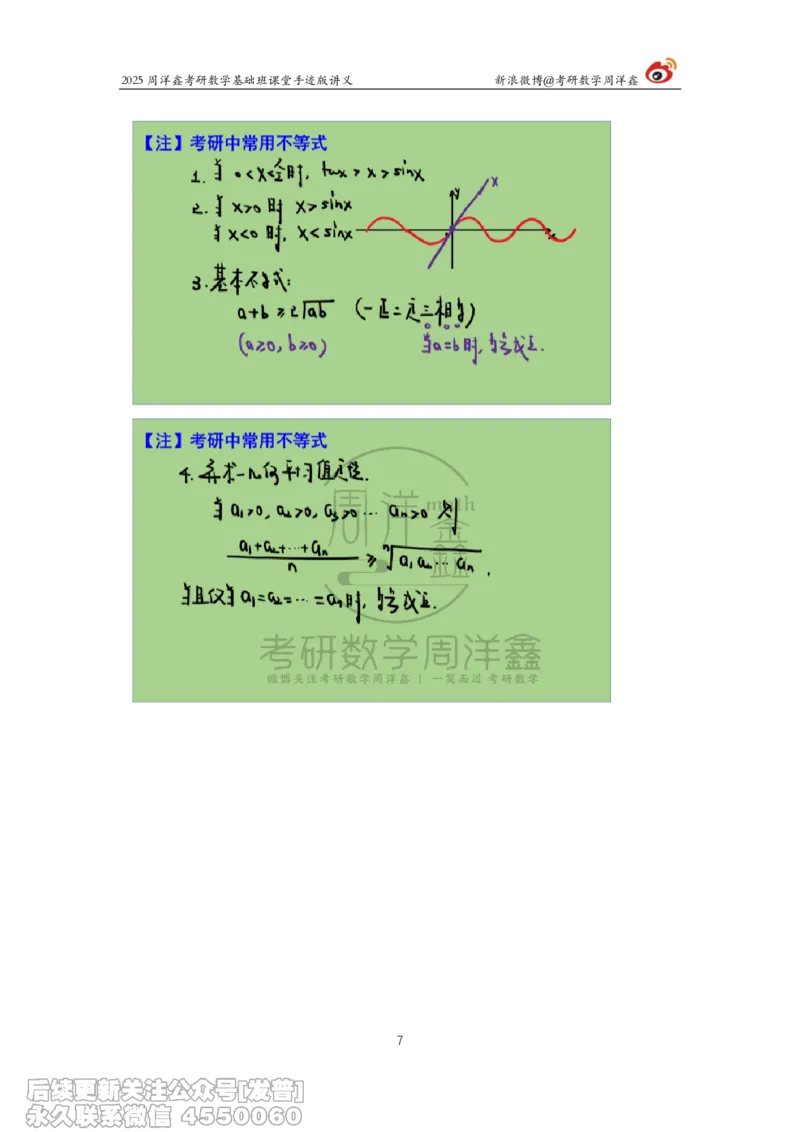 2025 周洋鑫考研数学基础班课堂手迹版讲义
新浪微博@考研数学周洋鑫
【注】考研中常用不等式
1. 当 0<x<π/2时, tanx > x > sinx
2. 当 x>0 时 x>sinx
当 x<0 时, x<sinx
y
x
x
3. 基本不等式:
a+b ≥ 2√ab (一正二定三相等)
(a≥0, b≥0) 当a=b时, 等号成立.
【注】考研中常用不等式
4. 算术-几何平均值定理.
当 a₁>0, a₂>0, a₃>0 … aₙ>0 则
(a₁+a₂+…+aₙ)/n ≥ ⁿ√(a₁a₂…aₙ).
当且仅当 a₁=a₂=…=aₙ时, 等号成立.
周洋鑫
math
考研数学周洋鑫
微博关注考研数学周洋鑫 | 一笑而过 考研数学
7
后续更新关注公众号[发普]
永久联系微信 4550060